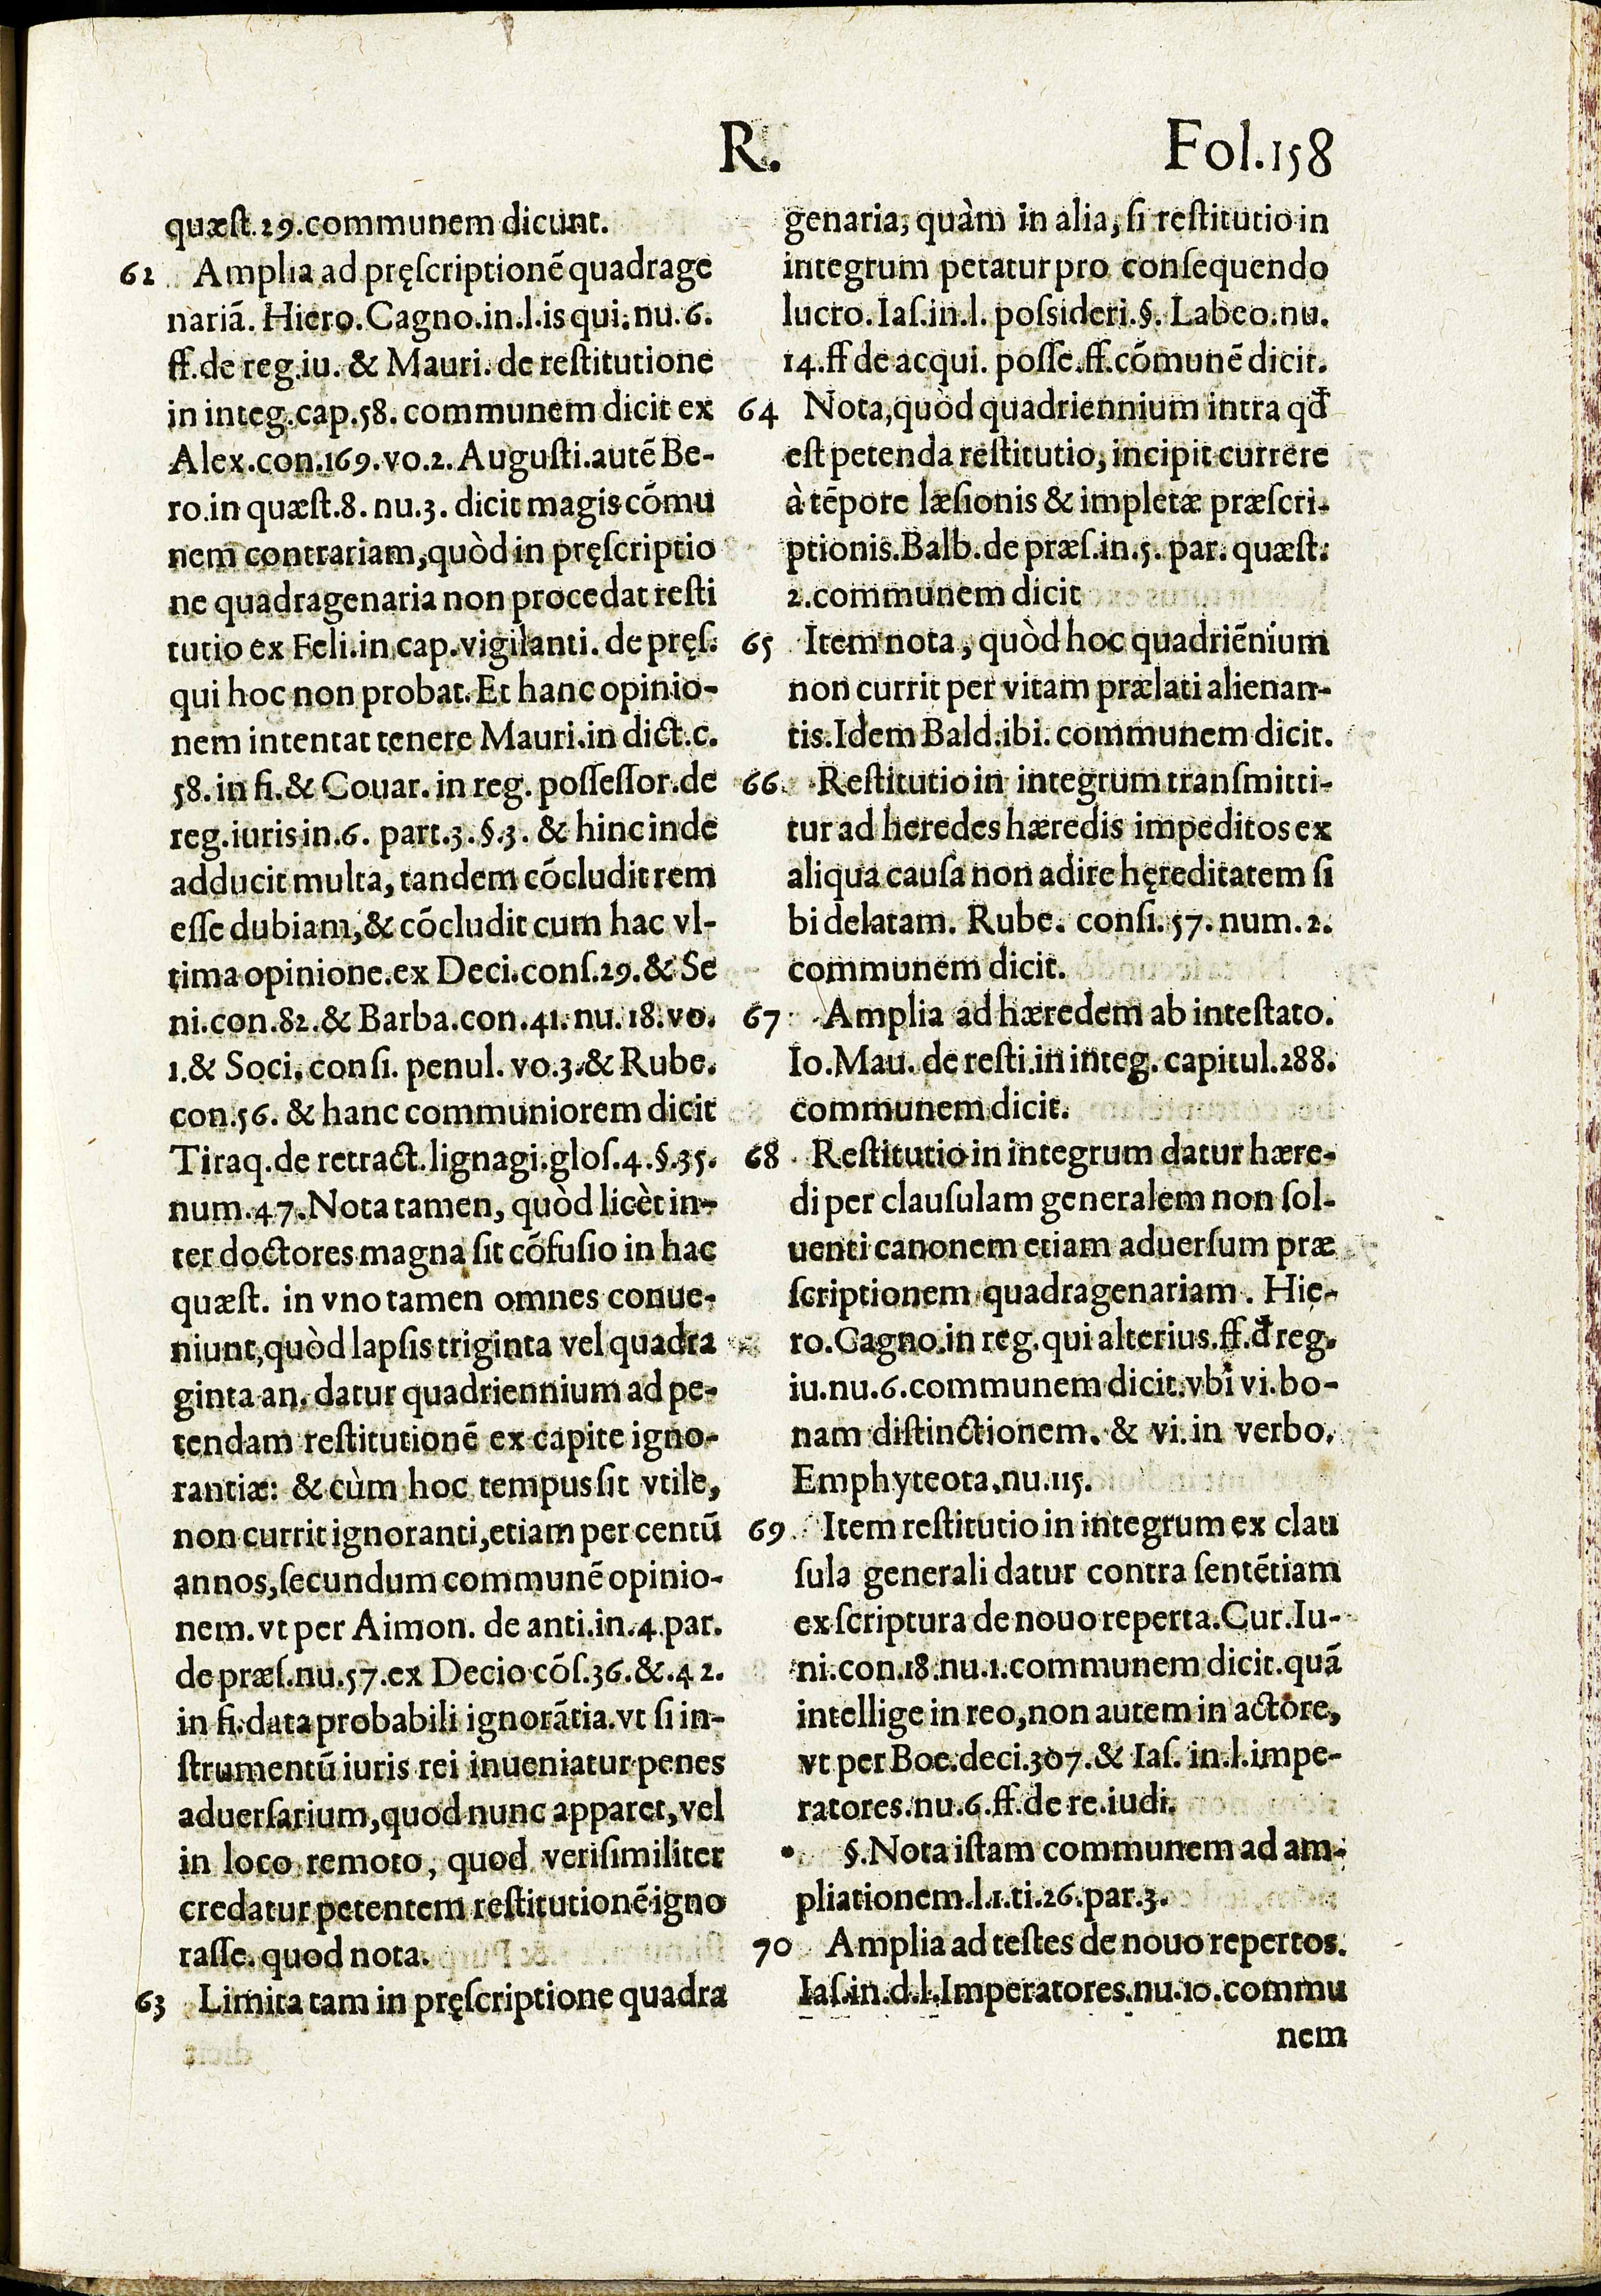 R.
Fol.158
quæſt.29.communem dicunt.
62 Amplia ad pręſcriptionē quadrage
nariā. Hiero.Cagno.in.l.is qui.nu.6.
ff.de reg.iu. & Mauri. de reſtitutione
in integ.cap.58. communem dicit ex
Alex.con.169.vo.2. Auguſti.autē Be-
ro.in quæſt.8. nu.3. dicit magis cōmu
nem contrariam,quòd in pręſcriptio
ne quadragenaria non procedat reſti
tutio ex Feli.in cap.vigilanti. de pręſ.
qui hoc non probat. Et hanc opinio-
nem intentat tenere Mauri.in dict.c.
58. in fi.& Couar. in reg. poſſeſſor.de
reg.iuris in.6. part.3.§.3. & hinc inde
adducit multa, tandem cōcludit rem
eſſe dubiam,& cōcludit cum hac vl-
tima opinione.ex Deci.conſ.29.& Se
ni.con.82.& Barba.con.41.nu.18.vo.
1.& Soci. conſi. penul. vo.3.& Rube.
con.56. & hanc communiorem dicit
Tiraq.de retract.lignagi.gloſ.4.§.35.
num.47.Nota tamen, quòd licèt in-
ter doctores magna ſit cōfuſio in hac
quæſt. in vno tamen omnes conue-
niunt,quòd lapſis triginta vel quadra
ginta an. datur quadriennium ad pe-
tendam reſtitutionē ex capite igno-
rantiæ: & cùm hoc tempus ſit vtile,
non currit ignoranti,etiam per centū
annos,ſecundum communē opinio-
nem. vt per Aimon. de anti.in.4.par.
de præſ.nu.57.ex Decio cōſ.36.&.42.
in fi.data probabili ignorātia.vt ſi in-
ſtrumentū iuris rei inueniatur penes
aduerſarium,quod nunc apparet,vel
in loco remoto, quod veriſimiliter
credatur petentem reſtitutionē igno
raſſe. quod nota.
63 Limita tam in pręſcriptione quadra
genaria, quàm in alia, ſi reſtitutio in
integrum petatur pro conſequendo
lucro. Iaſ.in.l. poſsideri.§. Labeo.nu.
14.ff de acqui. poſſe.ff.cōmunē dicit.
64 Nota,quòd quadriennium intra qđ
eſt petenda reſtitutio, incipit currere
à tēpore læſionis & impletæ præſcri-
ptionis.Balb.de præſ.in.5. par. quæſt.
2.communem dicit
65 Item nota, quòd hoc quadriēnium
non currit per vitam prælati alienan-
tis.Idem Bald.ibi. communem dicit.
66. Reſtitutio in integrum tranſmitti-
tur ad heredes hæredis impeditos ex
aliqua cauſa non adire hęreditatem ſi
bi delatam. Rube. conſi.57.num.2.
communem dicit.
67 Amplia ad hæredem ab inteſtato.
Io.Mau. de reſti.in integ. capitul.288.
communem dicit.
68 Reſtitutio in integrum datur hære-
di per clauſulam generalem non ſol-
uenti canonem etiam aduerſum præ
ſcriptionem quadragenariam. Hie-
ro.Cagno.in reg.qui alterius.ff.đ reg.
iu.nu.6.communem dicit.vbi vi.bo-
nam diſtinctionem. & vi. in verbo.
Emphyteota.nu.115.
69 Item reſtitutio in integrum ex clau
ſula generali datur contra ſentētiam
ex ſcriptura de nouo reperta.Cur.Iu-
ni.con.18.nu.1.communem dicit.quā
intellige in reo,non autem in actore,
vt per Boe.deci.307.& Iaſ. in.l.impe-
ratores.nu.6.ff.de re.iudi.
• §.Nota iſtam communem ad am-
pliationem.l.1.ti.26.par.3.
70 Amplia ad teſtes de nouo repertos.
Iaſ.in.d.l.Imperatores.nu.10.commu
nem